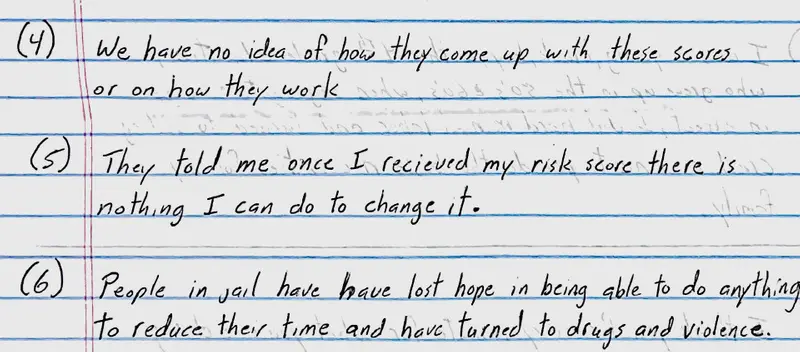 (4) We have no idea of how they come up with these scores
or on how they work
(5) They told me once I recieved my risk score there is
nothing I can do to change it.
(6) People in jail have have lost hope in being able to do anything
to reduce their time and have turned to drugs and violence.